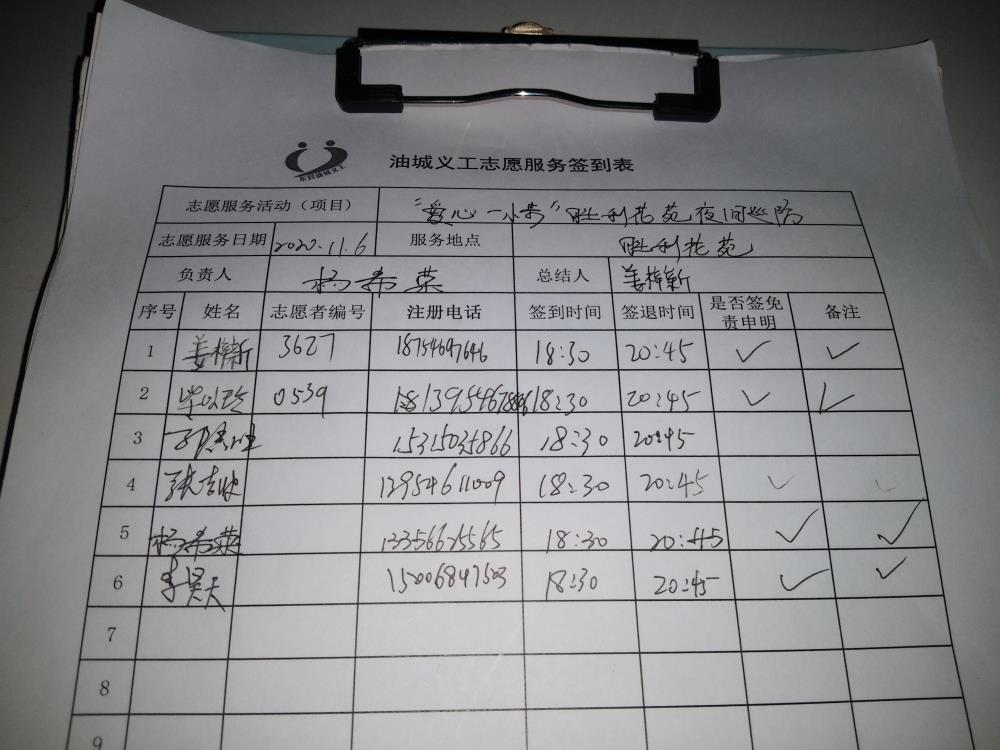 东营油城义工
油城义工志愿服务签到表
志愿服务活动（项目） “爱心一小步”胜利花苑夜间巡防
志愿服务日期 2020.11.6 服务地点 胜利花苑
负责人 杨希荣 总结人 姜梓新
序号 姓名 志愿者编号 注册电话 签到时间 签退时间 是否签免责申明 备注
1 姜梓新 3627 18754697646 18:30 20:45 ✓ ✓
2 0539 18:30 20:45 ✓ ✓
3 15315035866 18:30 20:45
4 18:30 20:45 ✓ ✓
5 杨希荣 18:30 20:45 ✓ ✓
6 李昊天 15006847503 18:30 20:45 ✓ ✓
7
8
9